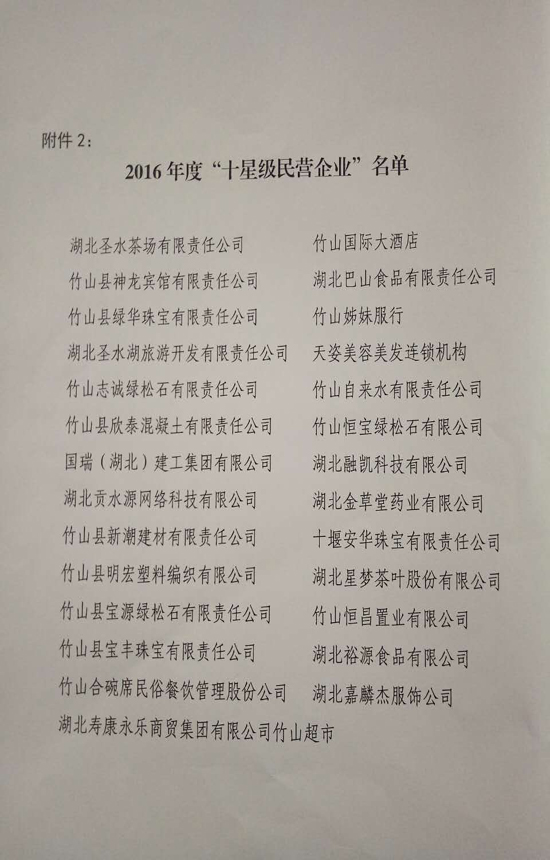 附件2：
2016年度“十星级民营企业”名单
湖北圣水茶场有限责任公司 竹山国际大酒店
竹山县神龙宾馆有限责任公司 湖北巴山食品有限责任公司
竹山县绿华珠宝有限责任公司 竹山姊妹服行
湖北圣水湖旅游开发有限责任公司 天姿美容美发连锁机构
竹山志诚绿松石有限责任公司 竹山自来水有限责任公司
竹山县欣泰混凝土有限责任公司 竹山恒宝绿松石有限公司
国瑞（湖北）建工集团有限公司 湖北融凯科技有限公司
湖北贡水源网络科技有限公司 湖北金草堂药业有限公司
竹山县新潮建材有限责任公司 十堰安华珠宝有限责任公司
竹山县明宏塑料编织有限公司 湖北星梦茶叶股份有限公司
竹山县宝源绿松石有限责任公司 竹山恒昌置业有限公司
竹山县宝丰珠宝有限责任公司 湖北裕源食品有限公司
竹山合碗席民俗餐饮管理股份公司 湖北嘉麟杰服饰公司
湖北寿康永乐商贸集团有限公司竹山超市